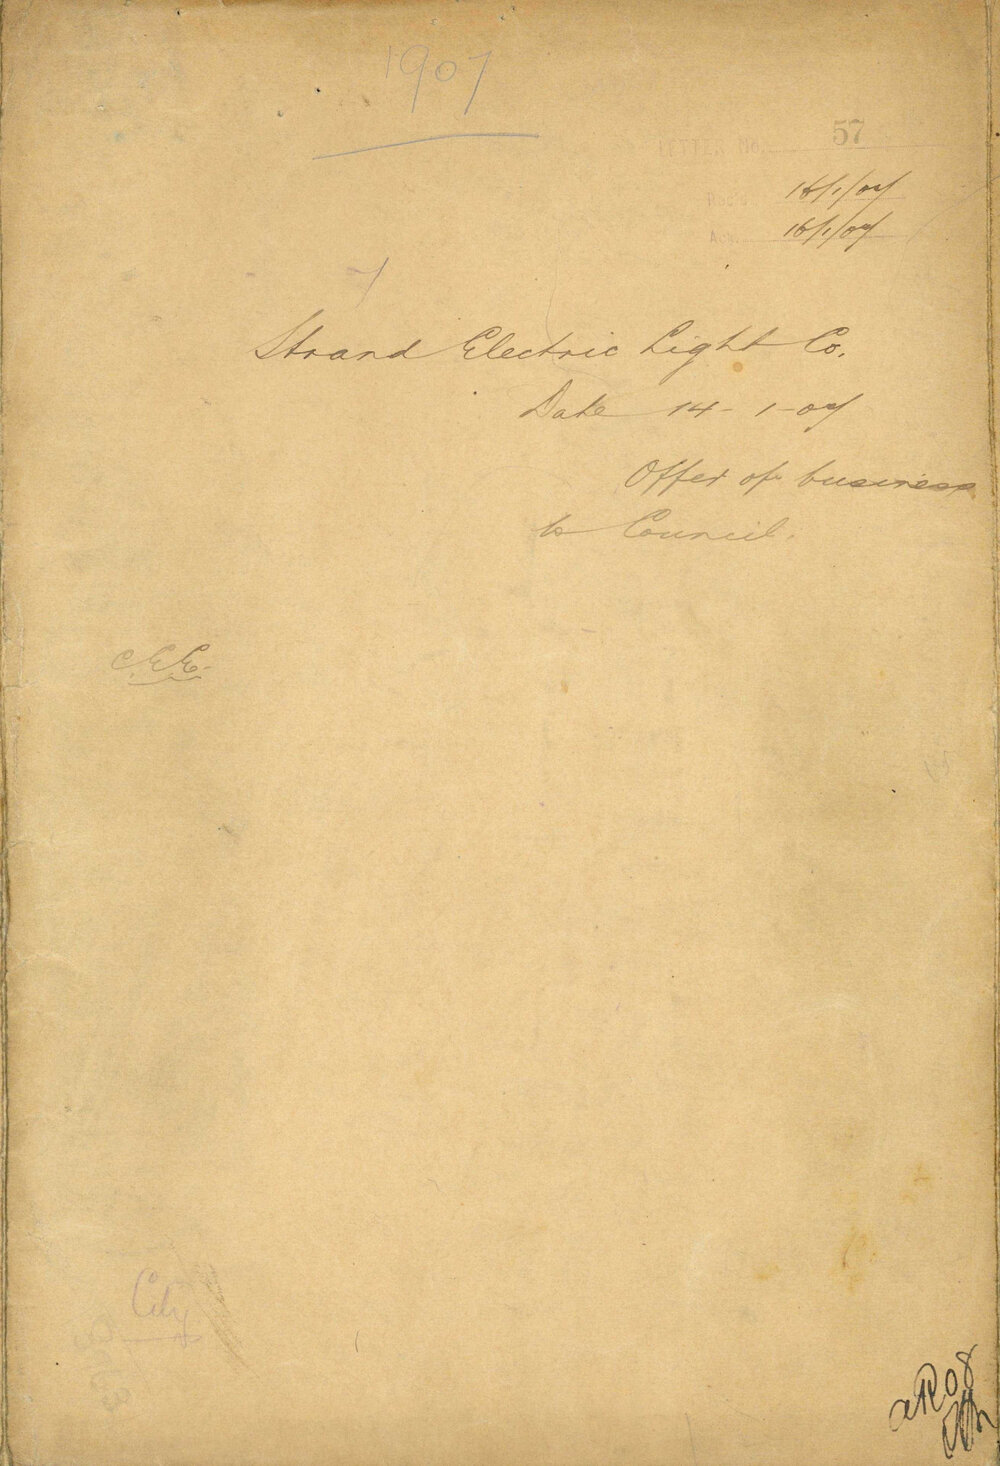 1907
LETTER No. 57
Rec'd 16/1/07
Ack. 16/1/07
Strand Electric Light Co.
Date 14-1-07
Offer of business
to Council.
C.E.E.
City